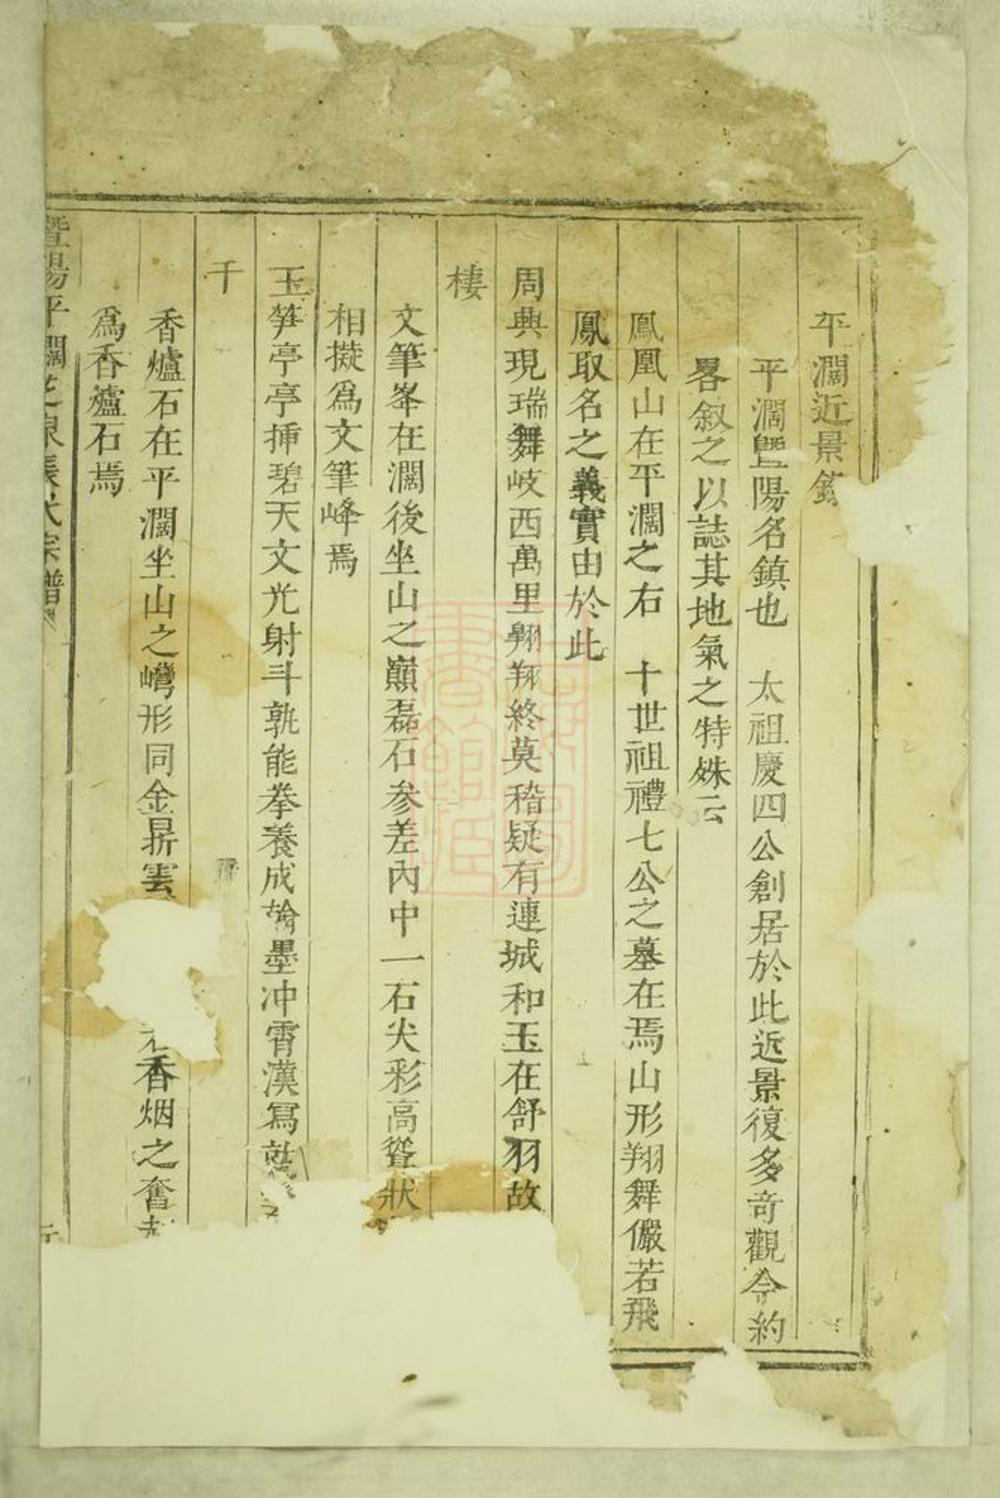 平濶近景
平濶曁陽名鎮也 太祖慶四公創居於此近景復多奇觀今約
畧叙之以誌其地氣之特姝云
鳳凰山在平濶之右 十世祖禮七公之墓在焉山形翔舞儼若飛
鳳取名之義實由於此
周典現瑞舞岐西萬里翱翔終莫稽疑有連城和玉在舒羽故
棲
文筆峯在濶後坐山之巔磊石參差內中一石尖彩高聳狀
相擬爲文筆峰焉
玉笋亭亭挿碧天文光射斗孰能拳養成翰墨冲霄漢寫就
千
香爐石在平濶坐山之巒形同金鼎雲 香烟之奮
爲香爐石焉
暨陽平濶 張氏宗譜
書館
圖